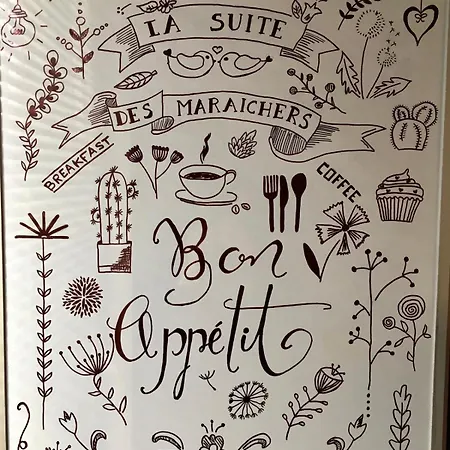 LA SUITE
DES MARAICHERS
BREAKFAST
COFFEE
Bon
Appétit